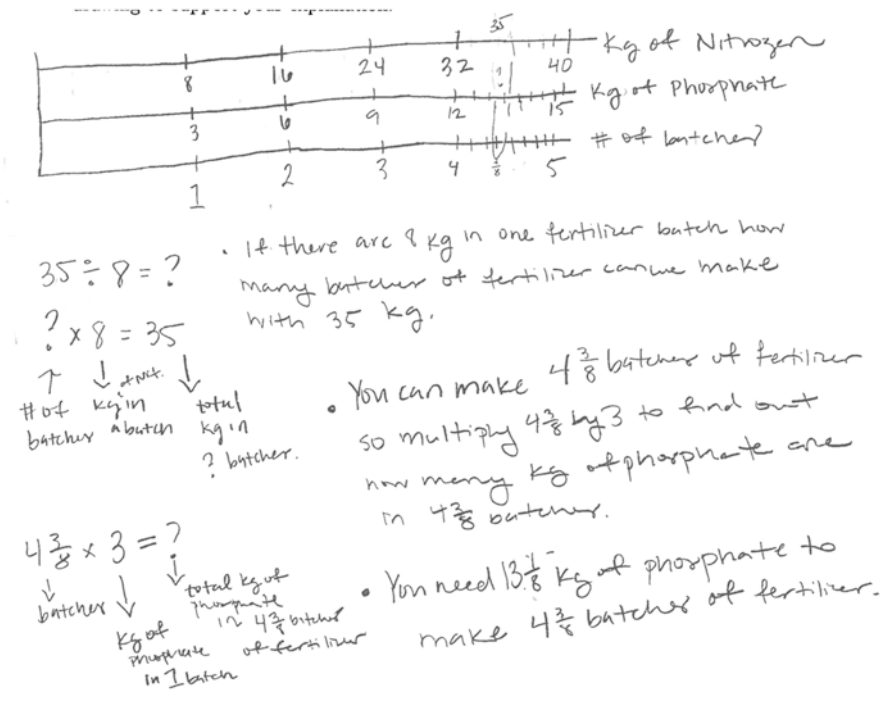 drawing to support your explanation.
35
8 16 24 32 40 Kg of Nitrogen
?
3 6 9 12 15 Kg of Phosphate
1 2 3 4 3/8 5 # of batches?
35 ÷ 8 = ?
? × 8 = 35
# of batches
kg in a batch
of Nit.
total kg in ? batches.
• If there are 8 kg in one fertilizer batch how
many batches of fertilizer can we make
with 35 kg.
• You can make 4 3/8 batches of fertilizer
so multiply 4 3/8 by 3 to find out
how many kg of phosphate are
in 4 3/8 batches.
4 3/8 × 3 = ?
batches
kg of
phosphate
in 1 batch
total kg of
phosphate
in 4 3/8 batches
of fertilizer
• You need 13 1/8 kg of phosphate to
make 4 3/8 batches of fertilizer.